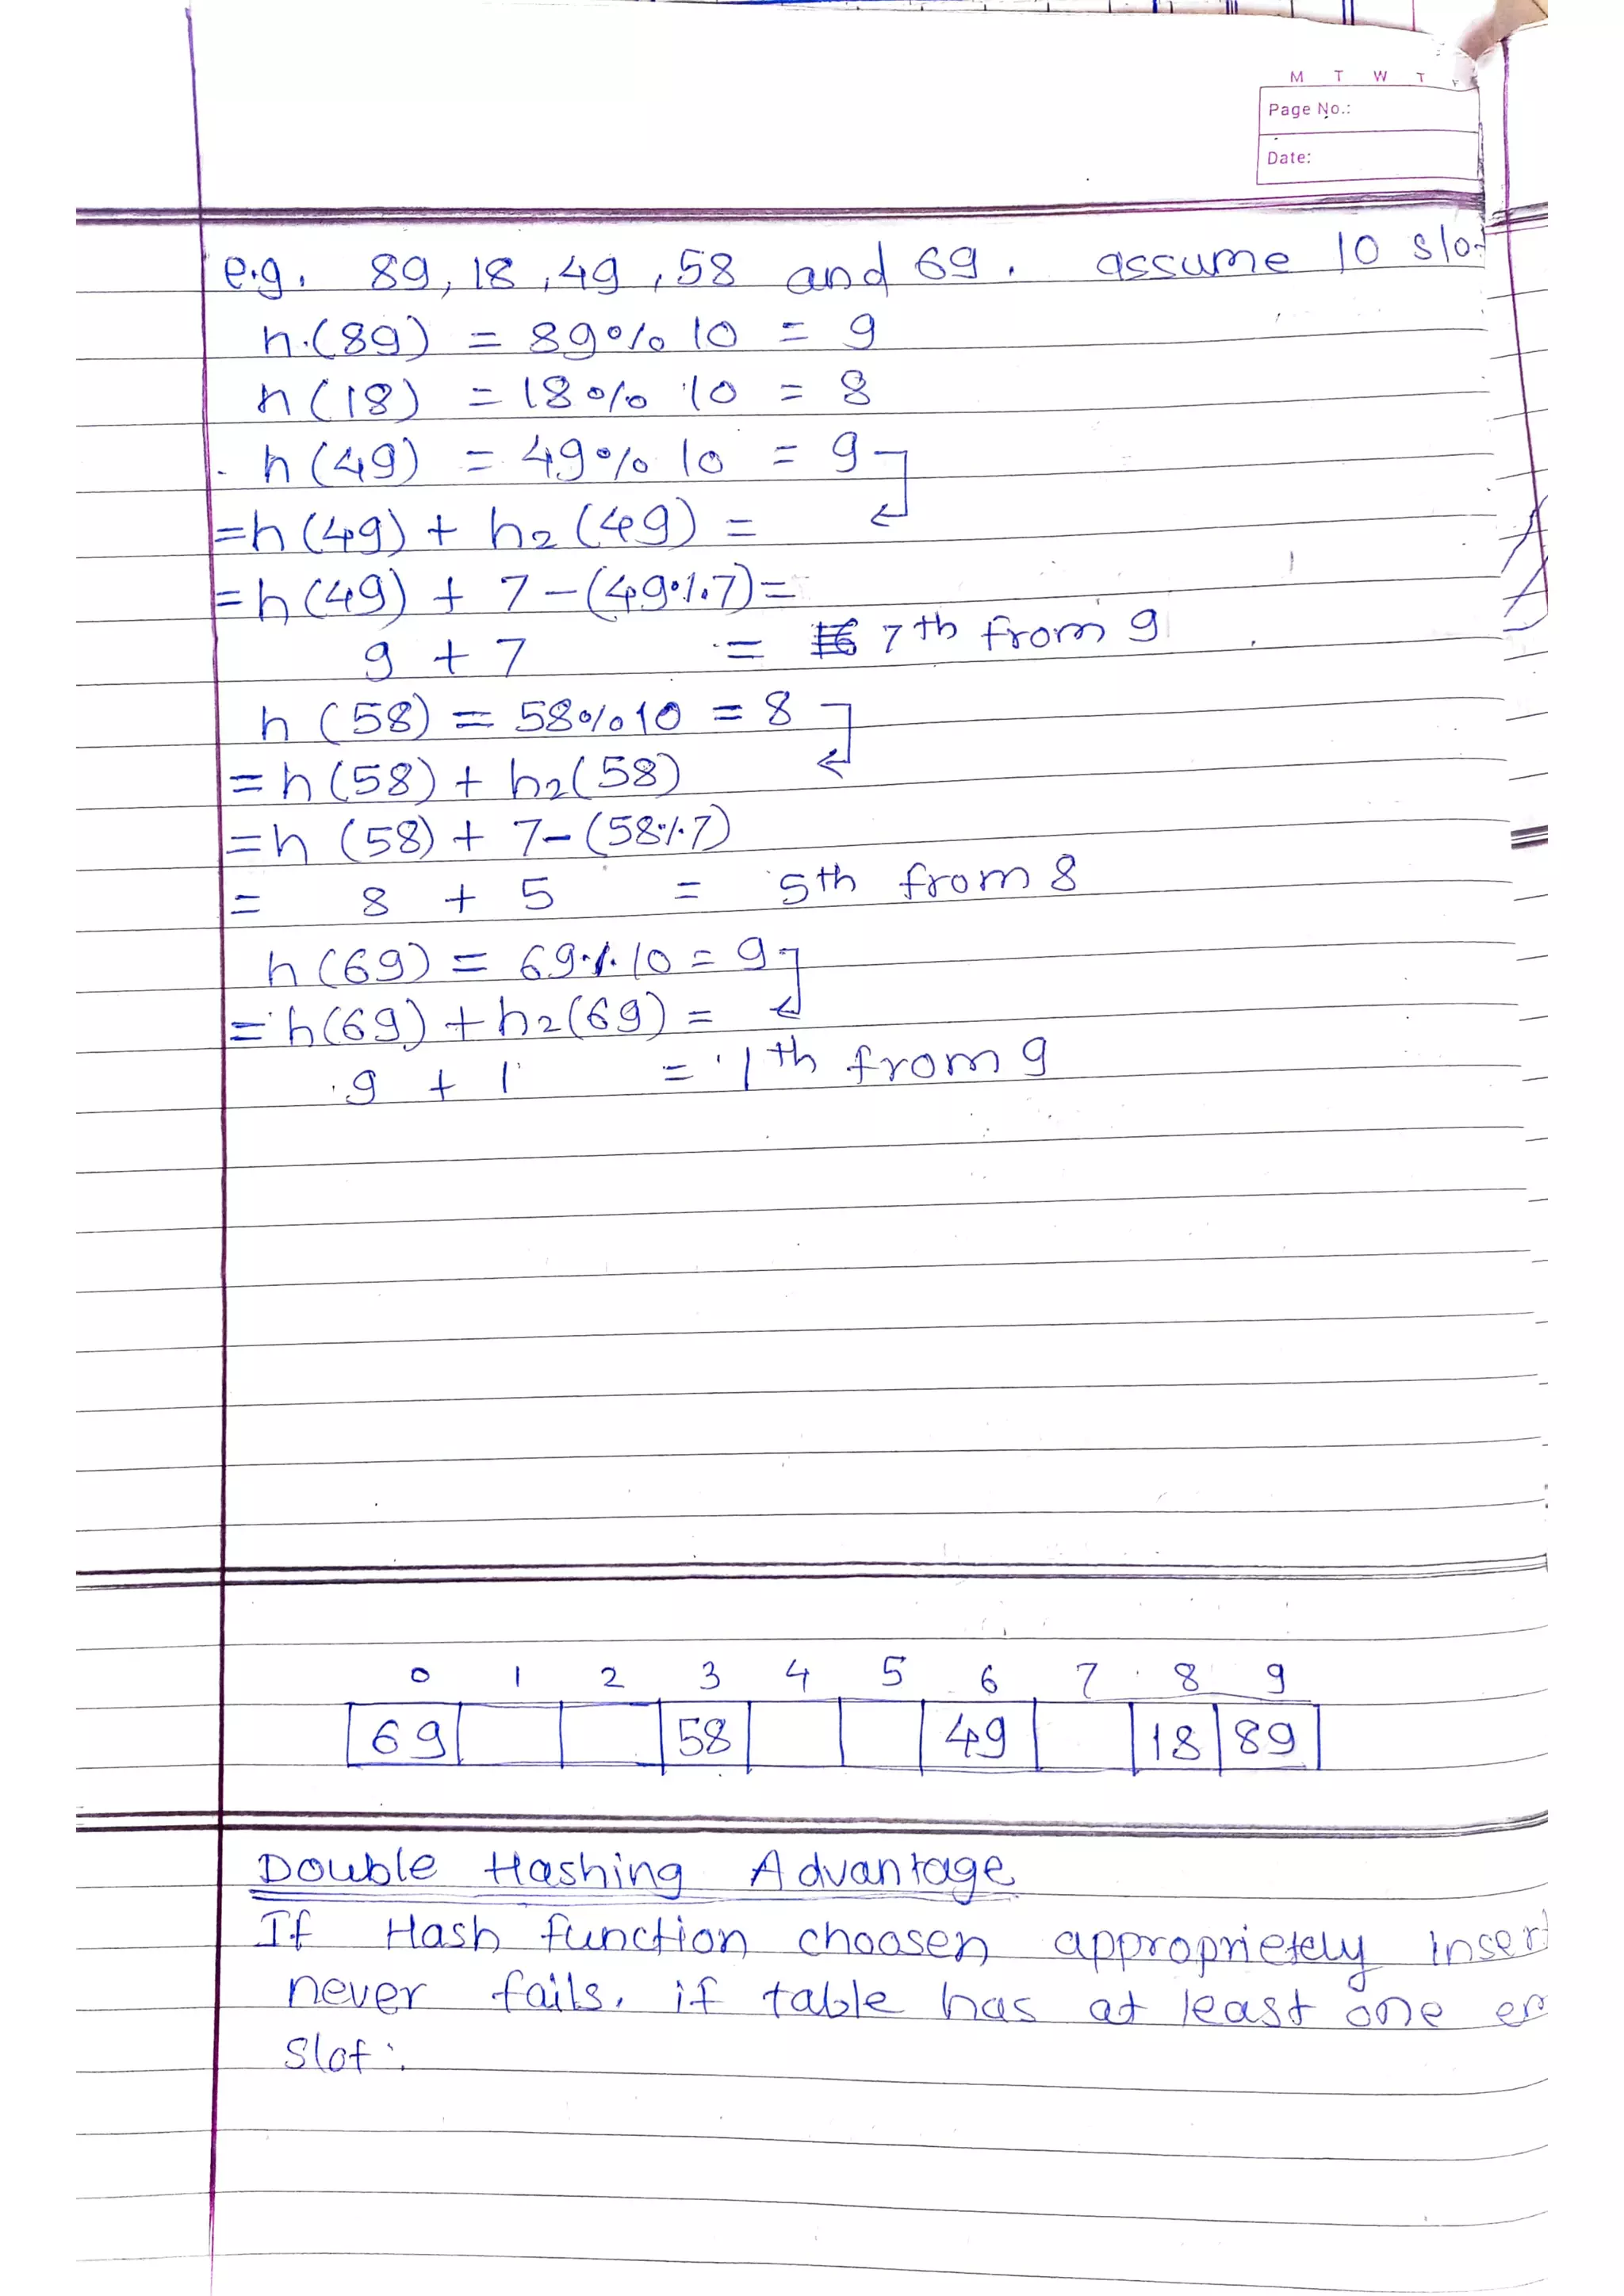 M T W T
Page No.:
Date:
e.g. 89, 18, 49, 58 and 69. assume 10 slot
h(89) = 89 % 10 = 9
h(18) = 18 % 10 = 8
h(49) = 49 % 10 = 9
= h(49) + h2(49) =
= h(49) + 7 - (49 % 7) =
9 + 7 = 7th from 9
h(58) = 58 % 10 = 8
= h(58) + h2(58)
= h(58) + 7 - (58 % 7)
= 8 + 5 = 5th from 8
h(69) = 69 % 10 = 9
= h(69) + h2(69) =
9 + 1 = 1th from 9
0 1 2 3 4 5 6 7 8 9
69 58 49 18 89
Double Hashing Advantage
If Hash function choosen appropriately insert
never fails. if table has at least one
Slot.